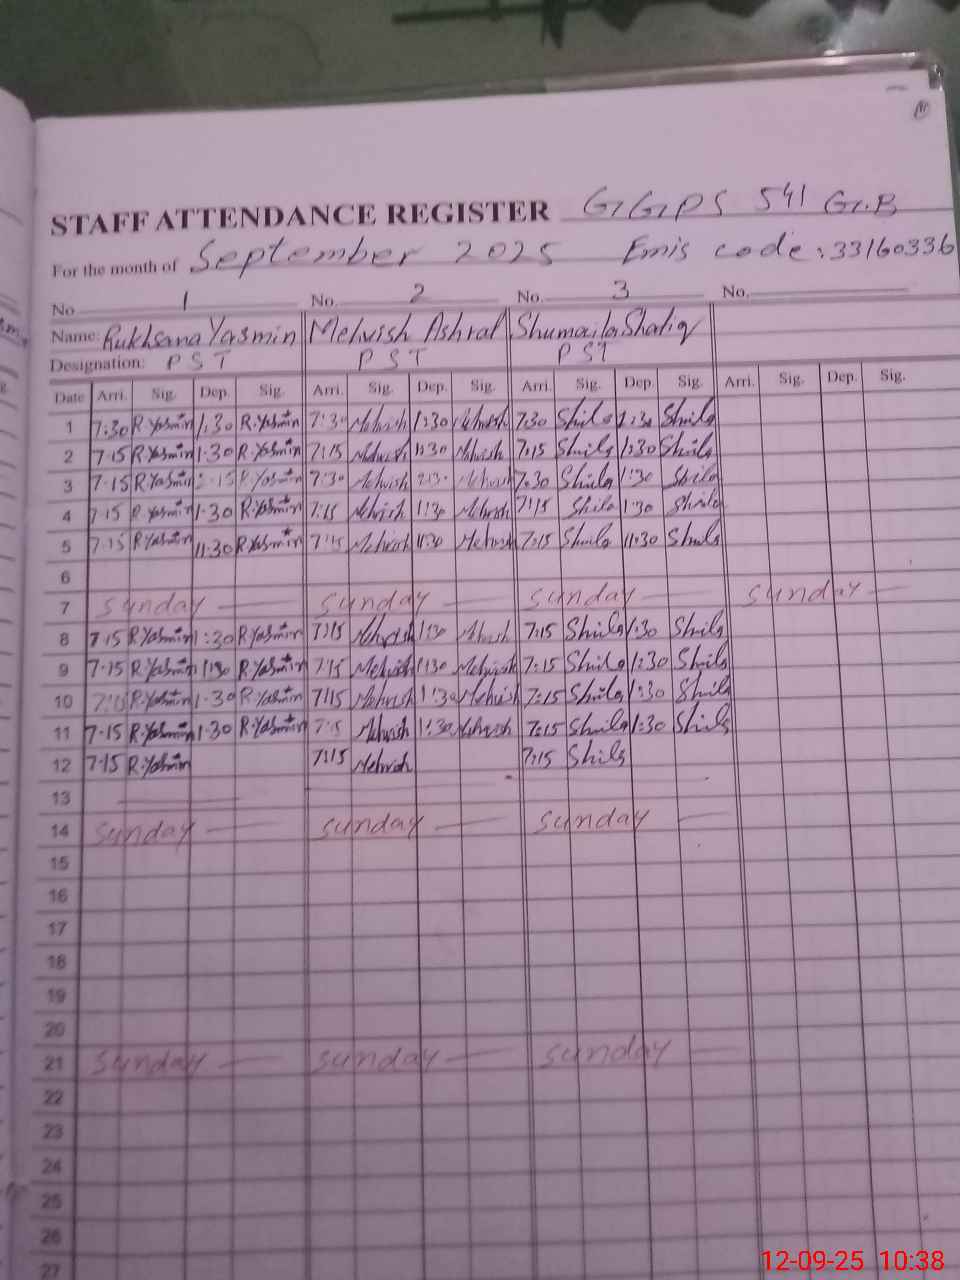 STAFF ATTENDANCE REGISTER GGPS 541 G.B
For the month of September 2025 Emis code: 33160336
No 1 No. 2 No. 3 No.
Name: Rukhsana Yasmin Mehvish Ashraf Shumaila Shafiq
Designation: PST PST PST
Date Arri. Sig. Dep. Sig. Arri. Sig. Dep. Sig. Arri. Sig. Dep. Sig. Arri. Sig. Dep. Sig.
1 7:30 R.Yasmin 1:30 R.Yasmin 7:30 Mehvish 1:30 Mehvish 7:30 Shila 1:30 Shila
2 7:15 R.Yasmin 1:30 R.Yasmin 7:15 Mehvish 1:30 Mehvish 7:15 Shila 1:30 Shila
3 7:15 R.Yasmin R.Yasmin 7:30 Mehvish Mehvish 7:30 Shila 1:30 Shila
4 7:15 R.Yasmin 1:30 R.Yasmin 7:15 Mehvish 1:30 Mehvish 7:15 Shila 1:30 Shila
5 7:15 R.Yasmin 11:30 R.Yasmin 7:15 Mehvish 11:30 Mehvish 7:15 Shila 11:30 Shila
6
7 Sunday Sunday Sunday Sunday
8 7:15 R.Yasmin 1:30 R.Yasmin 7:15 Mehvish 1:30 Mehvish 7:15 Shila 1:30 Shila
9 7:15 R.Yasmin 1:30 R.Yasmin 7:15 Mehvish 1:30 Mehvish 7:15 Shila 1:30 Shila
10 7:15 R.Yasmin 1:30 R.Yasmin 7:15 Mehvish 1:30 Mehvish 7:15 Shila 1:30 Shila
11 7:15 R.Yasmin 1:30 R.Yasmin 7:15 Mehvish 1:30 Mehvish 7:15 Shila 1:30 Shila
12 7:15 R.Yasmin 7:15 Mehvish 7:15 Shila
13
14 Sunday Sunday Sunday
15
16
17
18
19
20
21 Sunday Sunday Sunday
22
23
24
25
26
27
12-09-25 10:38